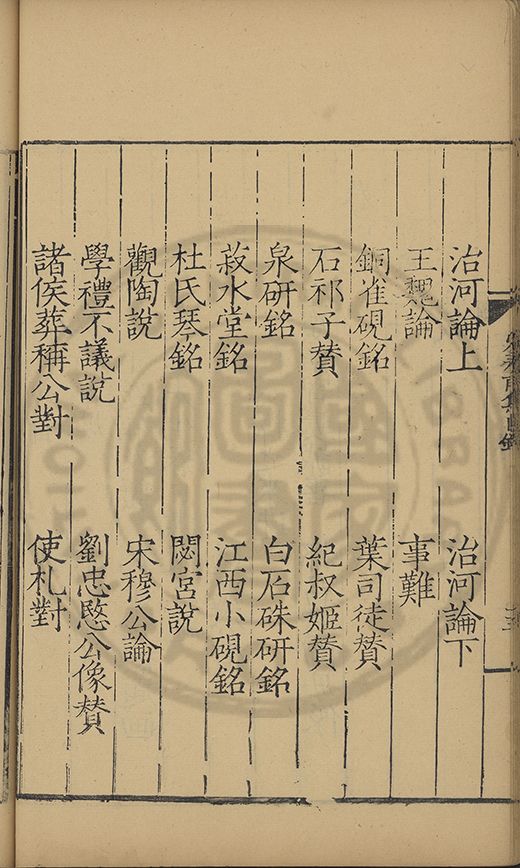 治河論上　治河論下
王魏論　事難
銅雀硯銘　葉司徒贊
石祁子贊　紀叔姬贊
泉研銘　白石硃研銘
菽水堂銘　江西小硯銘
杜氏琴銘　閟宮說
觀陶說　宋穆公論
學禮不議說　劉忠愍公像贊
諸侯葬稱公對　使札對